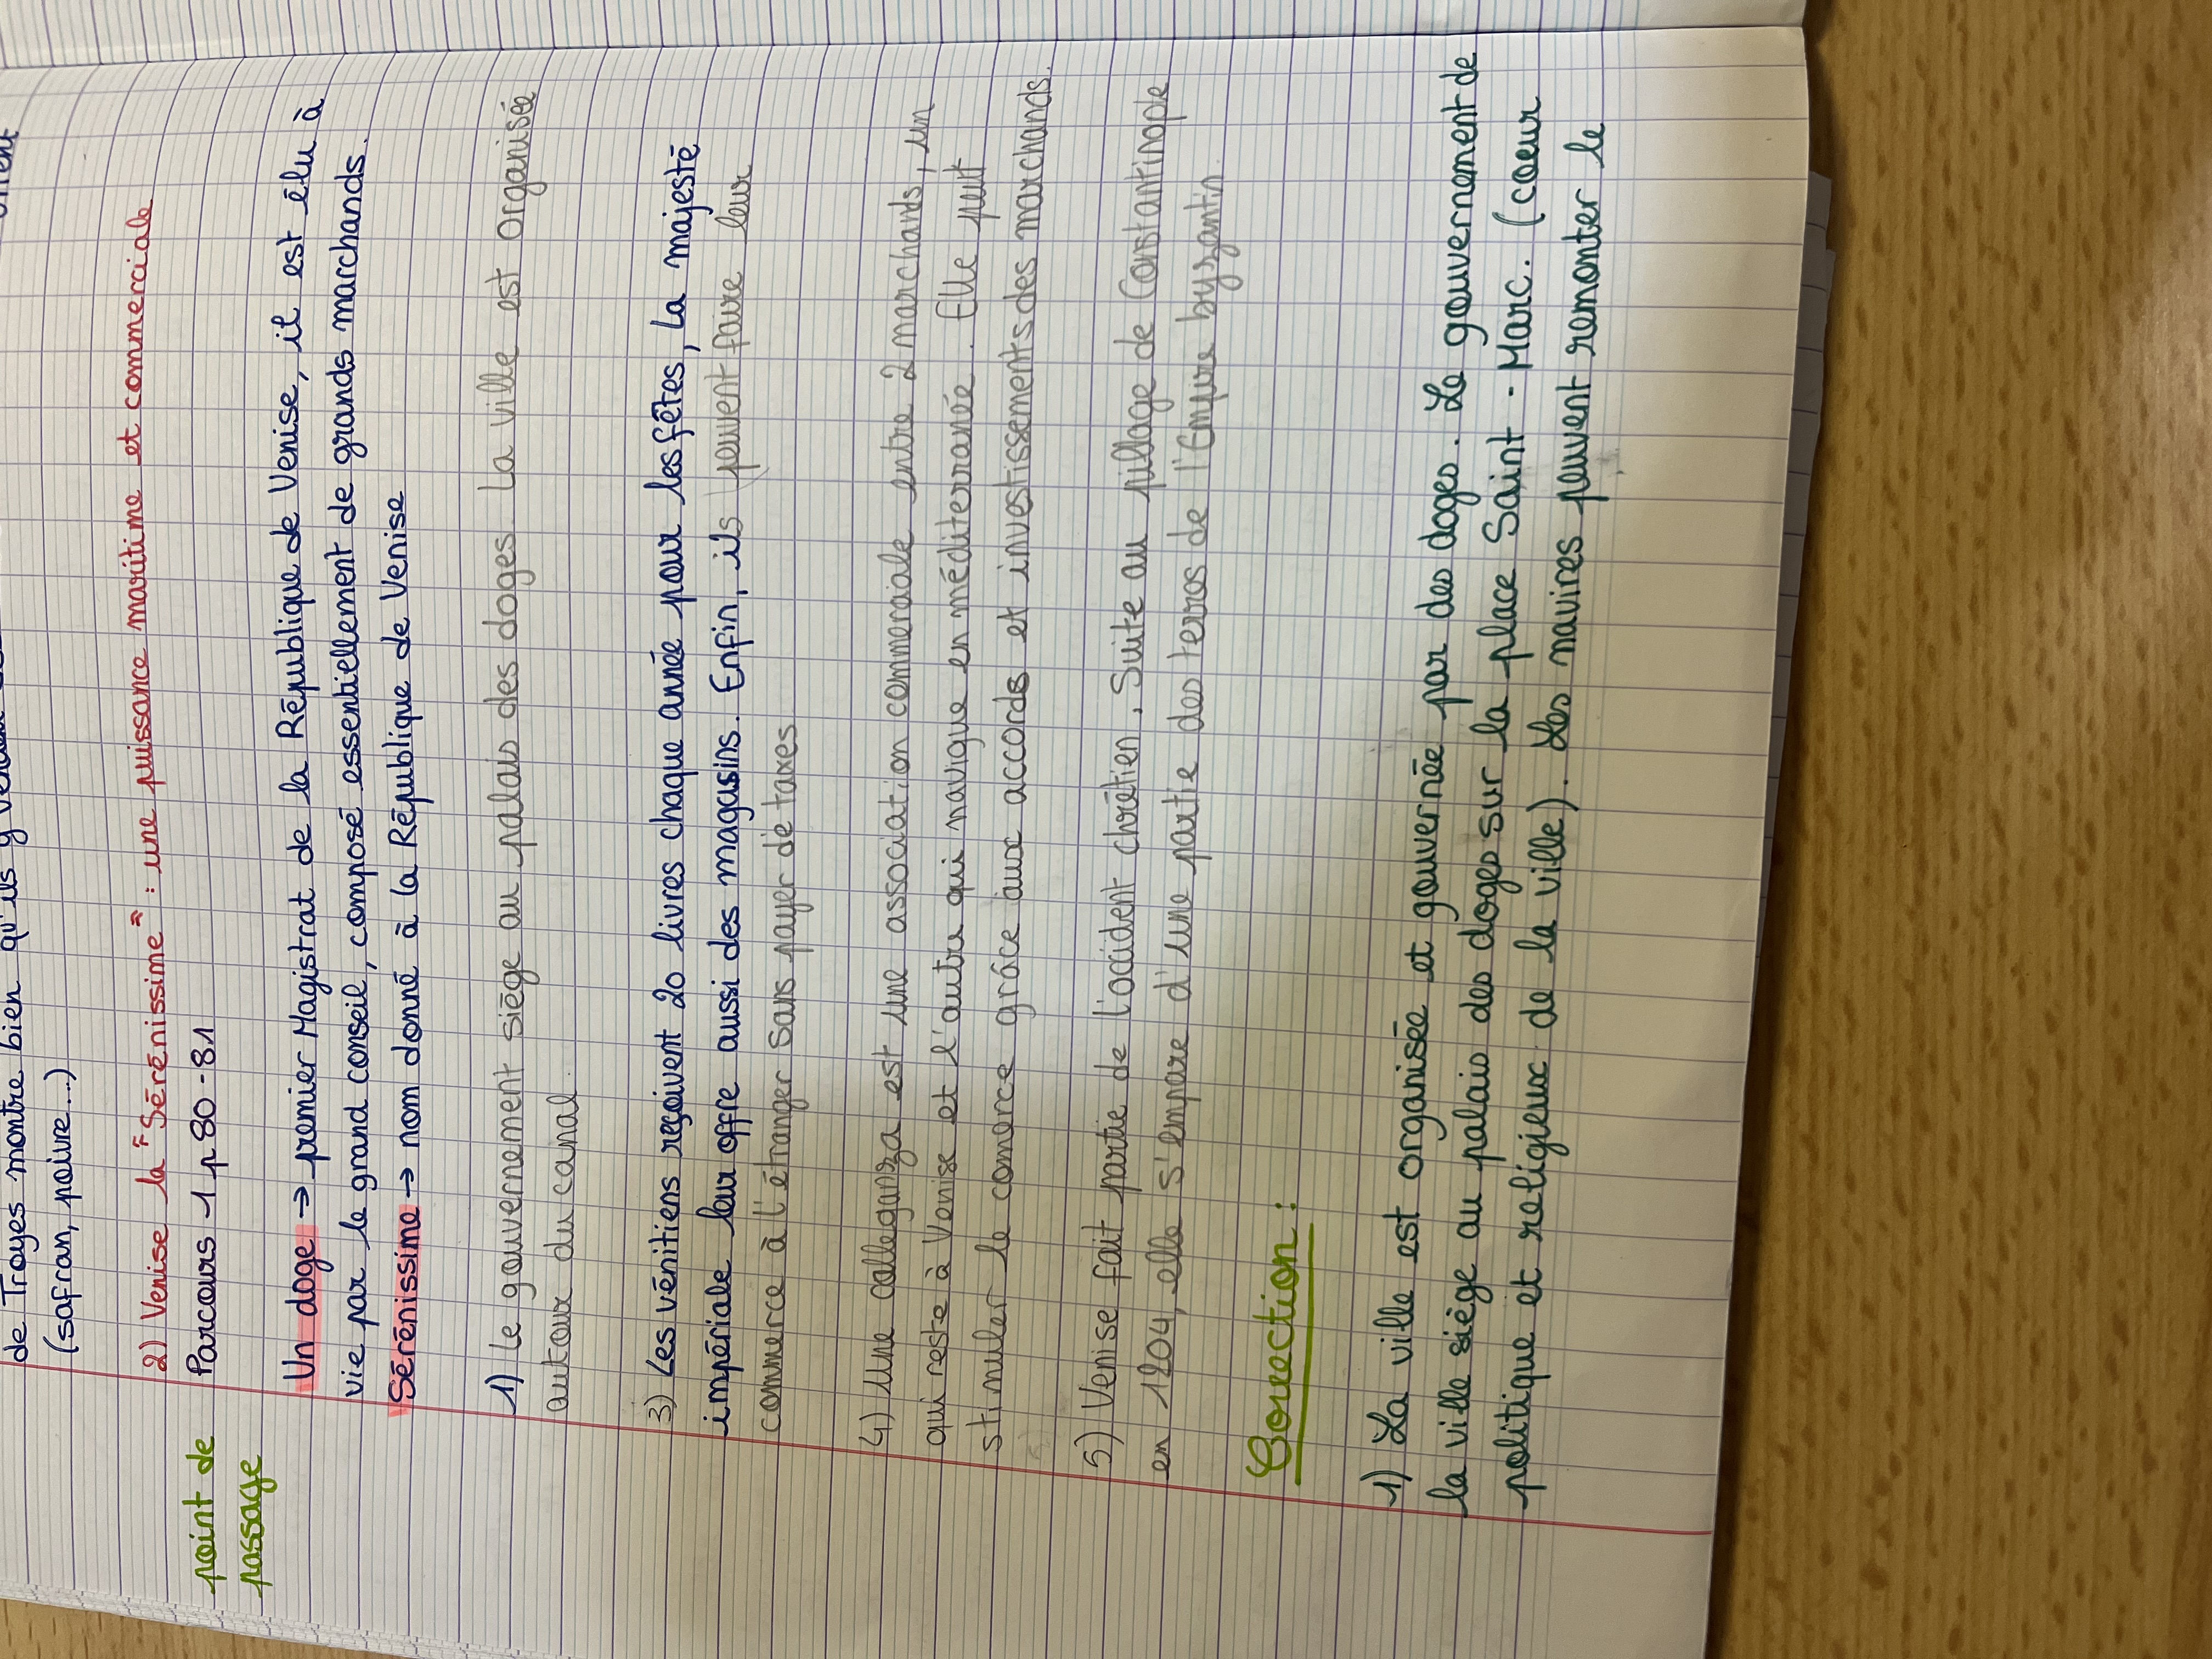 de Troyes montre bien qu'ils y
(safran, poivre...)
2) Venise la "Sérénissime" : une puissance maritime et commerciale
point de
passage
Parcours 1 p 80-81
Un doge → premier Magistrat de la République de Venise, il est élu à
vie par le grand conseil, composé essentiellement de grands marchands.
Sérénissime → nom donné à la République de Venise
1) Le gouvernement siège au palais des doges. La ville est organisée
autour du canal.
3) Les vénitiens reçoivent 20 livres chaque année pour les fêtes, La majesté
impériale leur offre aussi des magasins. Enfin, ils peuvent faire leur
commerce à l'étranger sans payer de taxes
4) Une colleganza est une association commerciale entre 2 marchands, un
qui reste à Venise et l'autre qui navigue en méditerranée. Elle peut
stimuler le comerce grâce aux accords et investissements des marchands.
5) Venise fait partie de l'occident chrétien. Suite au pillage de Constantinople
en 1204, elle s'empare d'une partie des terres de l'Empire byzantin.
Correction :
1) La ville est organisée et gouvernée par des doges. Le gouvernement de
la ville siège au palais des doges sur la place Saint-Marc. (coeur
politique et religieux de la ville). Les navires peuvent remonter le